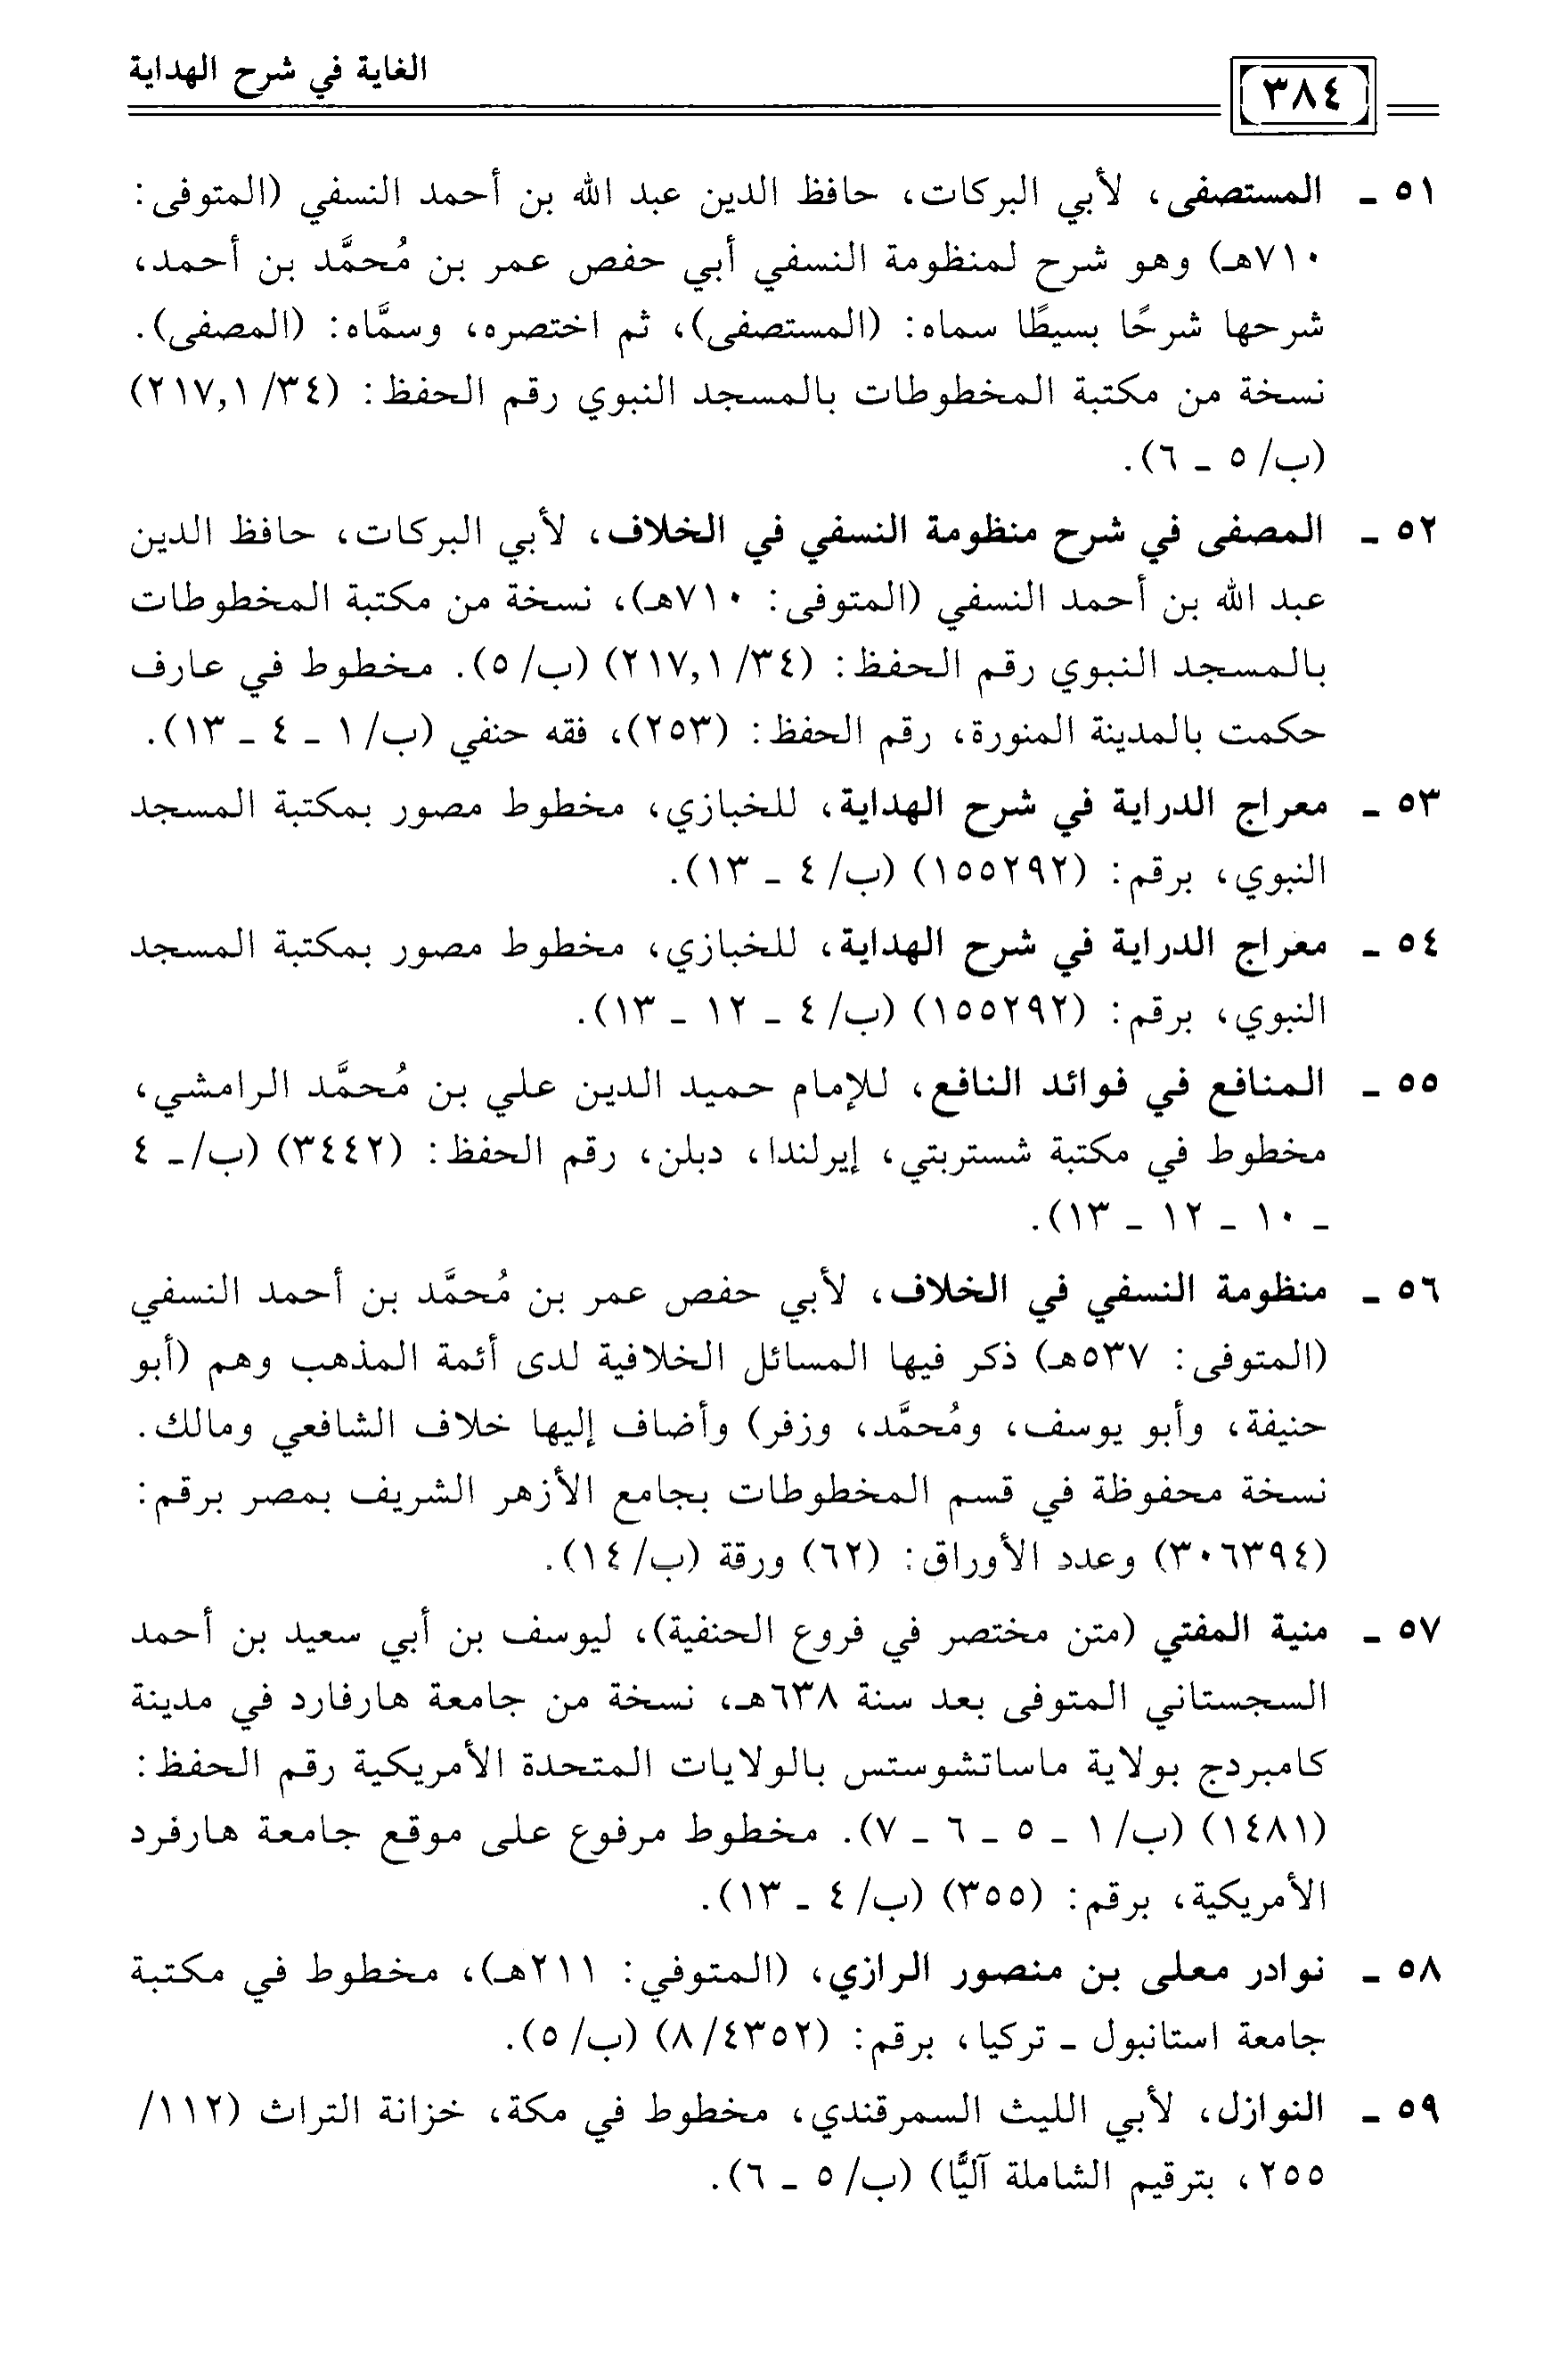 الغاية في شرح الهداية
٣٨٤
٥١ ـ المستصفى، لأبي البركات، حافظ الدين عبد الله بن أحمد النسفي (المتوفى:
٧١٠هـ) وهو شرح لمنظومة النسفي أبي حفص عمر بن مُحمَّد بن أحمد،
شرحها شرحًا بسيطًا سماه: (المستصفى)، ثم اختصره، وسمَّاه: (المصفى).
نسخة من مكتبة المخطوطات بالمسجد النبوي رقم الحفظ: (٣٤/ ٢١٧,١)
(ب/ ٥ ـ ٦).
٥٢ ـ المصفى في شرح منظومة النسفي في الخلاف، لأبي البركات، حافظ الدين
عبد الله بن أحمد النسفي (المتوفى: ٧١٠هـ)، نسخة من مكتبة المخطوطات
بالمسجد النبوي رقم الحفظ: (٣٤/ ٢١٧,١) (ب/ ٥). مخطوط في عارف
حكمت بالمدينة المنورة، رقم الحفظ: (٢٥٣)، فقه حنفي (ب/ ١ ـ ٤ ـ ١٣).
٥٣ ـ معراج الدراية في شرح الهداية، للخبازي، مخطوط مصور بمكتبة المسجد
النبوي، برقم: (١٥٥٢٩٢) (ب/ ٤ ـ ١٣).
٥٤ ـ معراج الدراية في شرح الهداية، للخبازي، مخطوط مصور بمكتبة المسجد
النبوي، برقم: (١٥٥٢٩٢) (ب/ ٤ ـ ١٢ ـ ١٣).
٥٥ ـ المنافع في فوائد النافع، للإمام حميد الدين علي بن مُحمَّد الرامشي،
مخطوط في مكتبة شستربتي، إيرلندا، دبلن، رقم الحفظ: (٣٤٤٢) (ب/ـ ٤
ـ ١٠ ـ ١٢ ـ ١٣).
٥٦ ـ منظومة النسفي في الخلاف، لأبي حفص عمر بن مُحمَّد بن أحمد النسفي
(المتوفى: ٥٣٧هـ) ذكر فيها المسائل الخلافية لدى أئمة المذهب وهم (أبو
حنيفة، وأبو يوسف، ومُحمَّد، وزفر) وأضاف إليها خلاف الشافعي ومالك.
نسخة محفوظة في قسم المخطوطات بجامع الأزهر الشريف بمصر برقم:
(٣٠٦٣٩٤) وعدد الأوراق: (٦٢) ورقة (ب/ ١٤).
٥٧ ـ منية المفتي (متن مختصر في فروع الحنفية)، ليوسف بن أبي سعيد بن أحمد
السجستاني المتوفى بعد سنة ٦٣٨هـ، نسخة من جامعة هارفارد في مدينة
كامبردج بولاية ماساتشوستس بالولايات المتحدة الأمريكية رقم الحفظ:
(١٤٨١) (ب/ ١ ـ ٥ ـ ٦ ـ ٧). مخطوط مرفوع على موقع جامعة هارفرد
الأمريكية، برقم: (٣٥٥) (ب/ ٤ ـ ١٣).
٥٨ ـ نوادر معلى بن منصور الرازي، (المتوفي: ٢١١هـ)، مخطوط في مكتبة
جامعة استانبول ـ تركيا، برقم: (٨/٤٣٥٢) (ب/ ٥).
٥٩ ـ النوازل، لأبي الليث السمرقندي، مخطوط في مكة، خزانة التراث (١١٢/
٢٥٥، بترقيم الشاملة آليًّا) (ب/ ٥ ـ ٦).